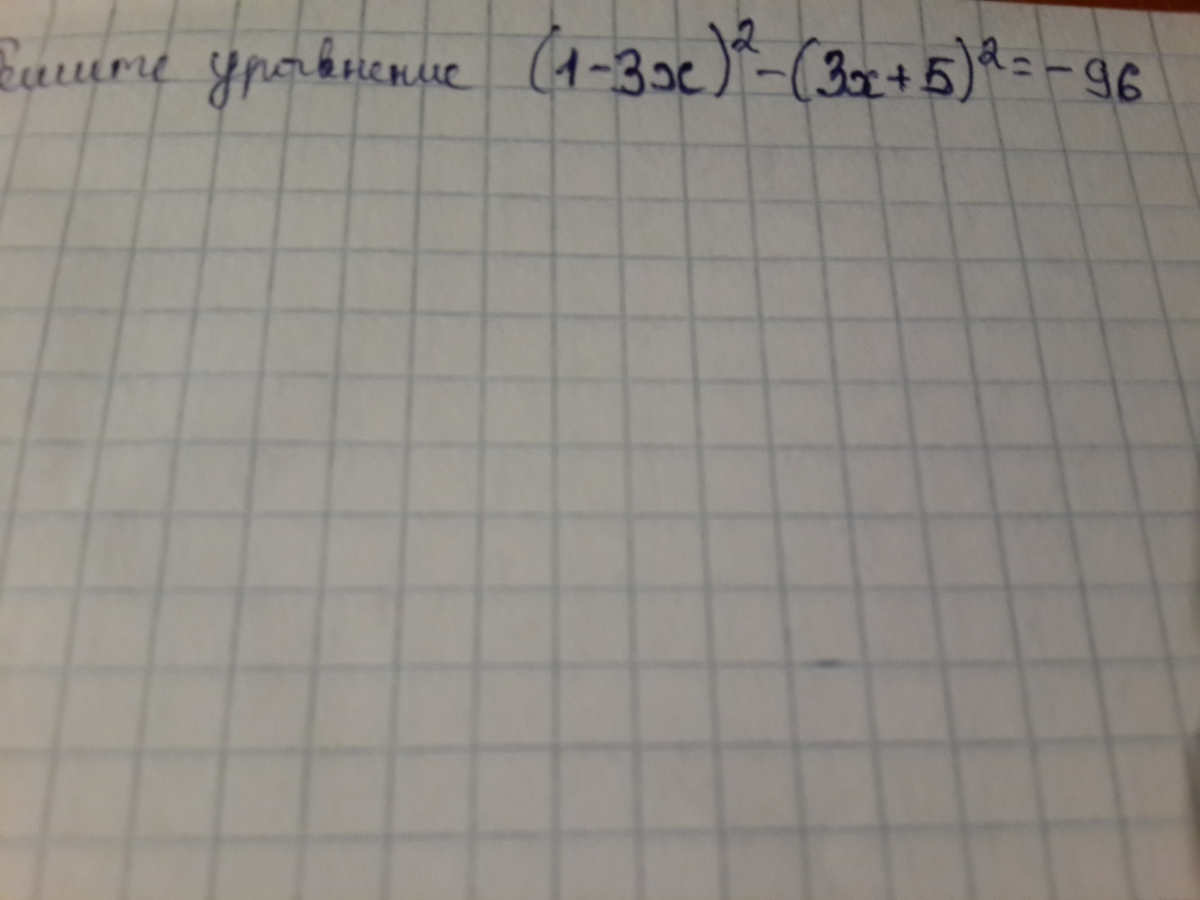 Решите уравнение (1-3x)²-(3x+5)²=-96